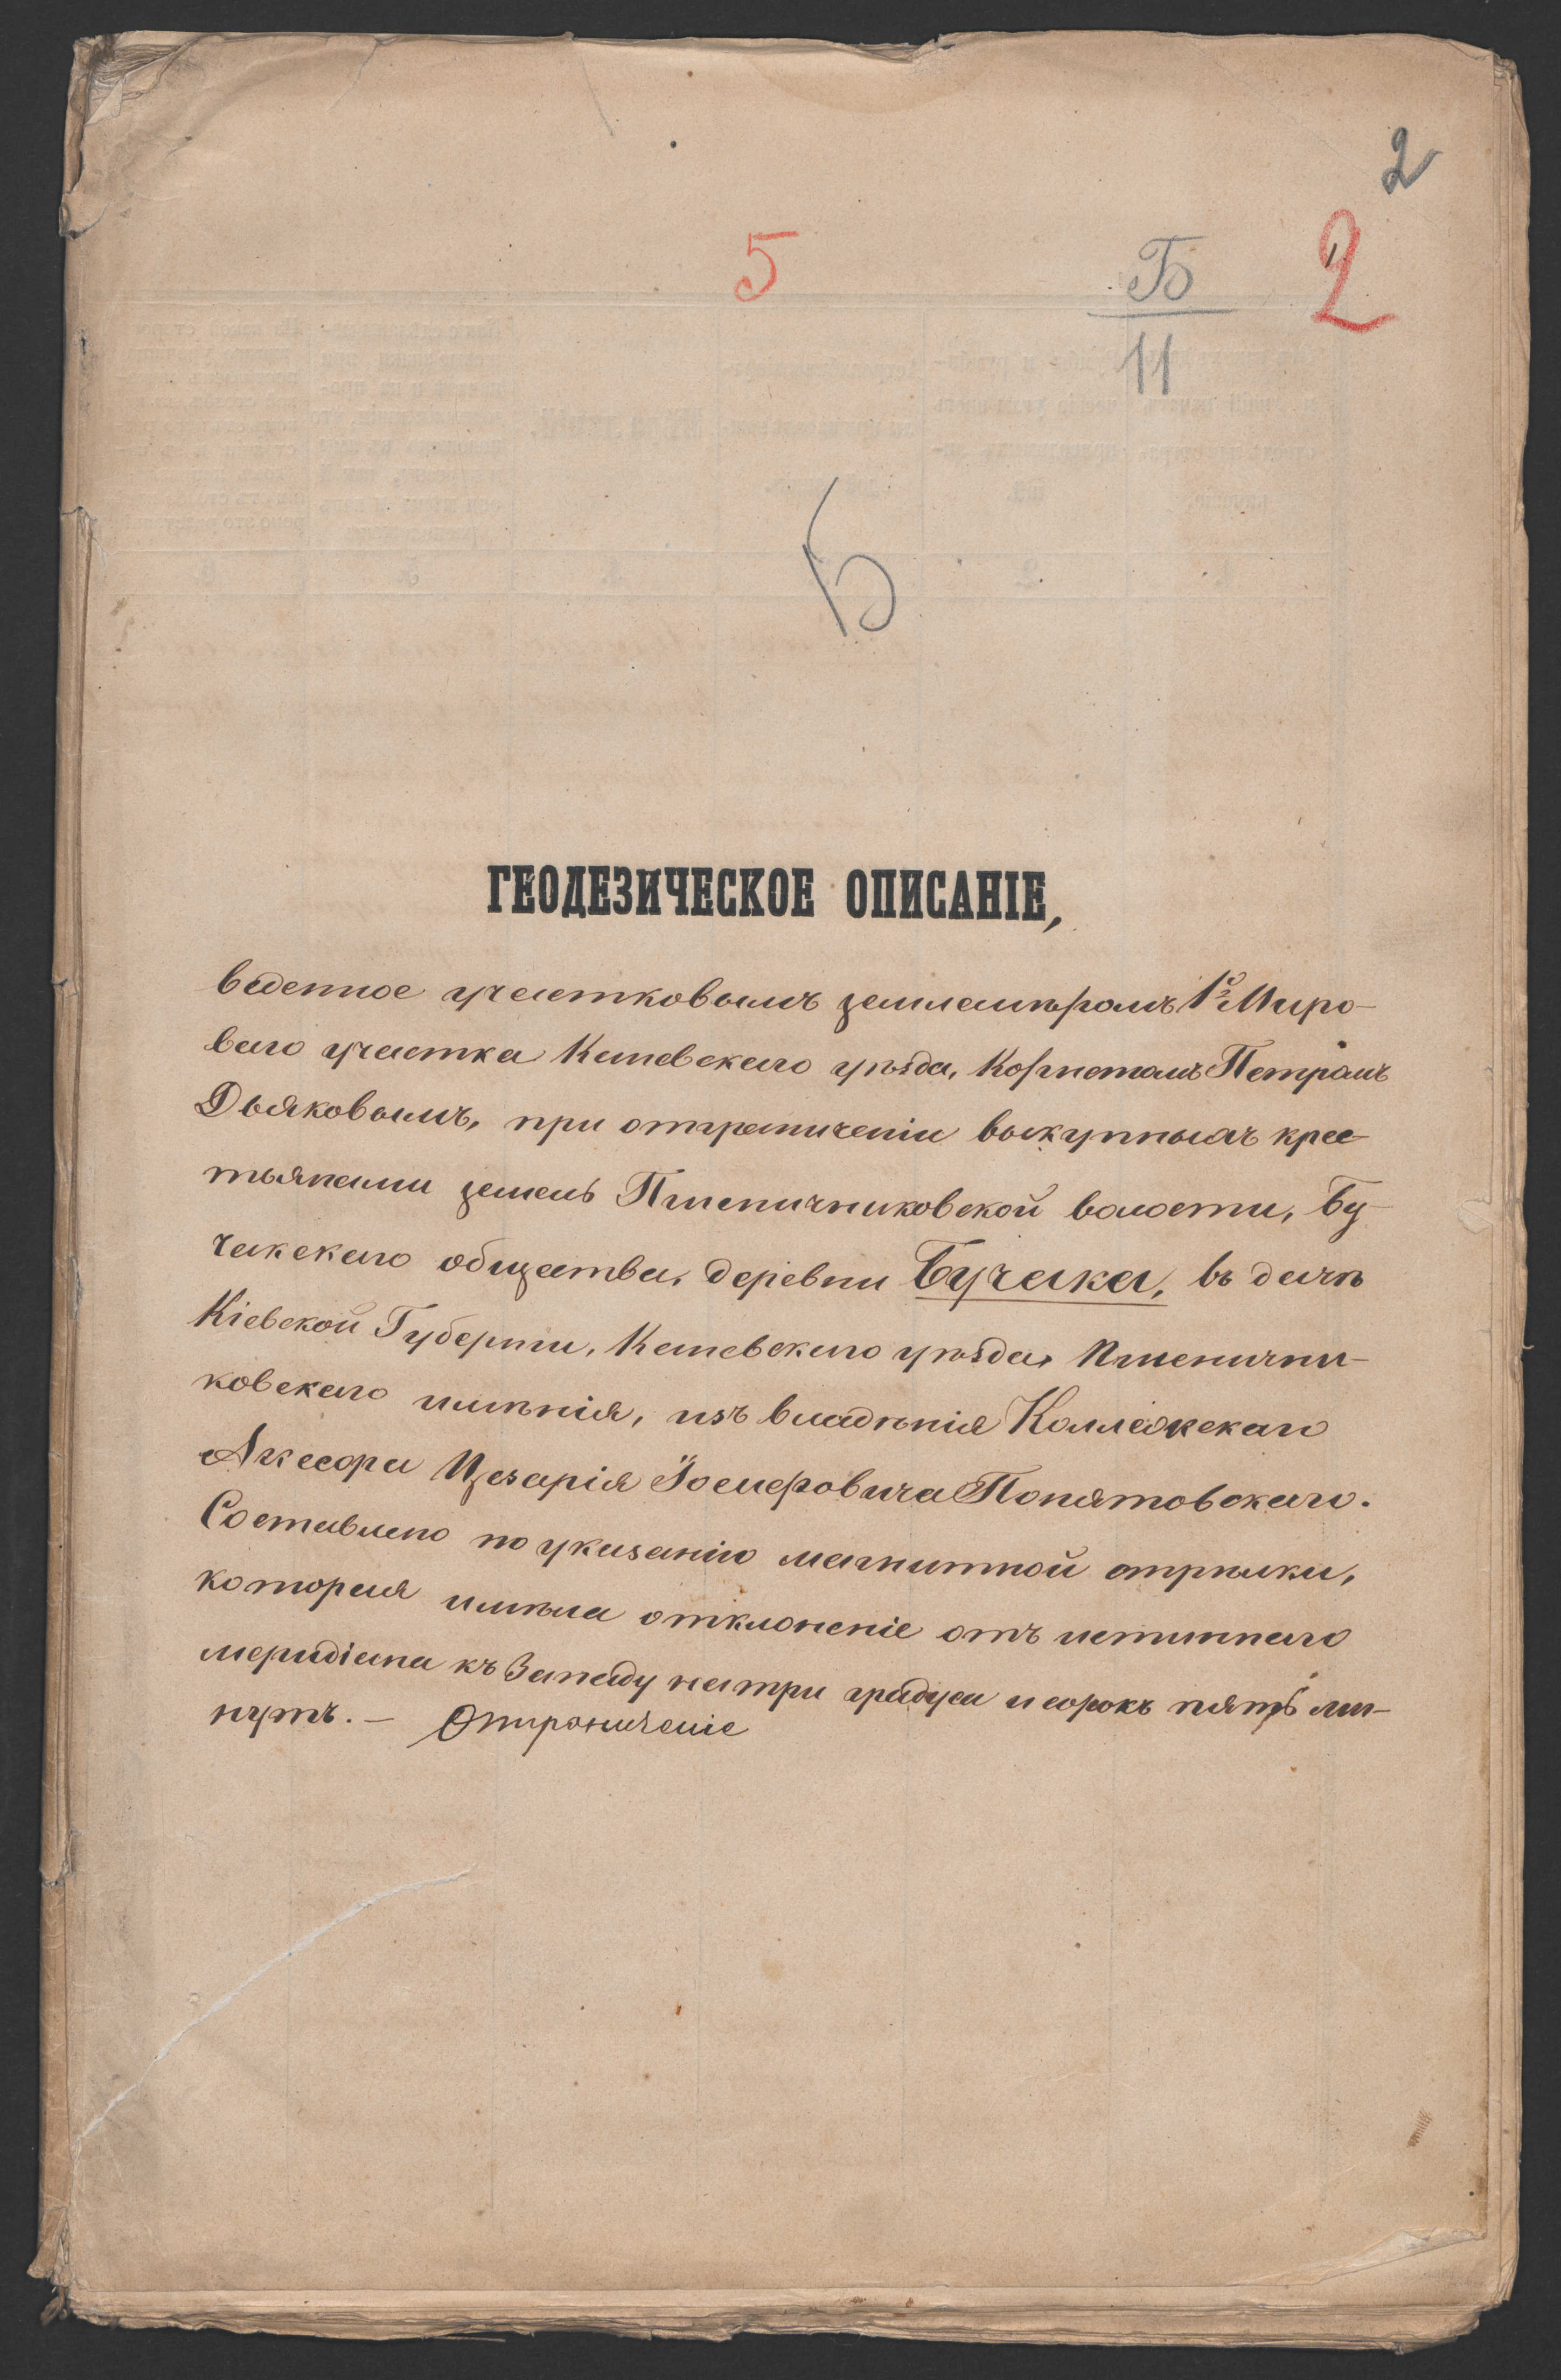 2
5
Б
2
11
Б
ГЕОДЕЗИЧЕСКОЕ ОПИСАНІЕ,
веденное участковымъ землемѣромъ 1го Миро-
ваго участка Каневскаго уѣзда, Корнетомъ Петромъ
Дьяковымъ, при отграниченіи выкупныхъ крес-
тьянами земель Пшеничниковской волости, Бу-
чакскаго общества, деревни Бучака, въ дачѣ
Кіевской Губерніи, Каневскаго уѣзда, Пшенични-
ковскаго имѣнія, изъ владѣнія Коллежскаго
Ассесора Цезарія Іосифовича Понятовскаго.
Составлено по указанію магнитной стрѣлки,
которая имѣла отклоненіе отъ истиннаго
меридіана къ Западу на три градуса и сорокъ пять ми-
нутъ. — Отграниченіе